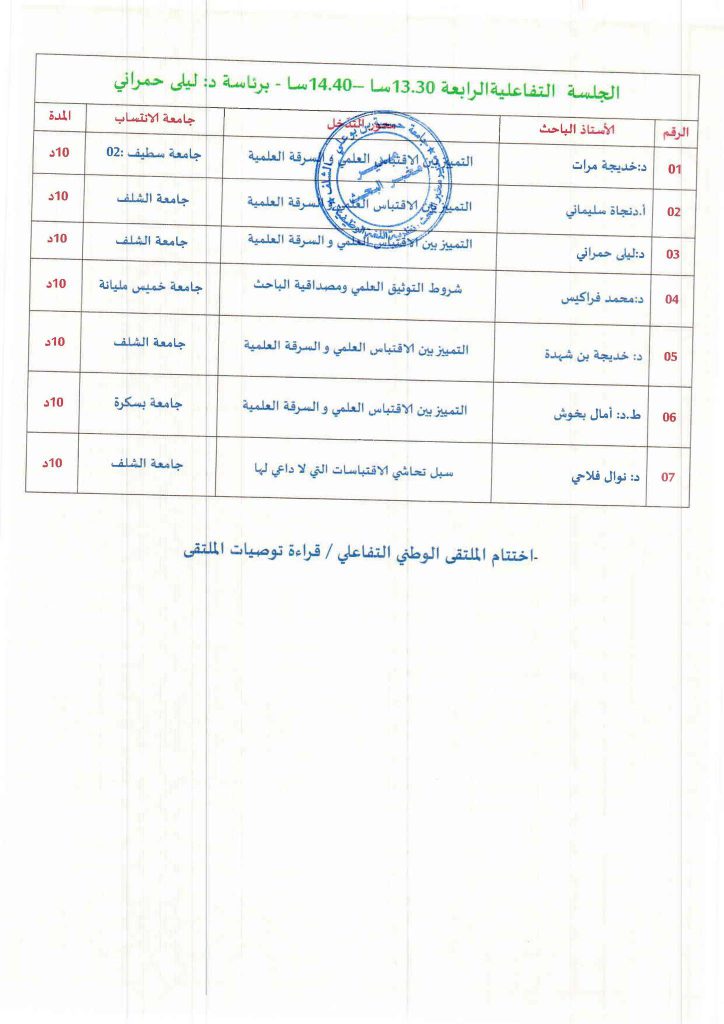 الجلسة التفاعليةالرابعة 13.30سا –14.40سا - برئاسة د: ليلى حمراني
الرقم الأستاذ الباحث محور التدخل جامعة الانتساب المدة
01 د:خديجة مرات التمييز بين الاقتباس العلمي و السرقة العلمية جامعة سطيف :02 10د
02 أ.دنجاة سليماني التمييز بين الاقتباس العلمي و السرقة العلمية جامعة الشلف 10د
03 د:ليلى حمراني التمييز بين الاقتباس العلمي و السرقة العلمية جامعة الشلف 10د
04 د:محمد فراكيس شروط التوثيق العلمي ومصداقية الباحث جامعة خميس مليانة 10د
05 د: خديجة بن شهدة التمييز بين الاقتباس العلمي و السرقة العلمية جامعة الشلف 10د
06 ط.د: أمال بخوش التمييز بين الاقتباس العلمي و السرقة العلمية جامعة بسكرة 10د
07 د: نوال فلاحي سبل تحاشي الاقتباسات التي لا داعي لها جامعة الشلف 10د
-اختتام الملتقى الوطني التفاعلي / قراءة توصيات الملتقى
جامعة حسيبة بن بوعلي بالشلف
مدير
مخبر البحث